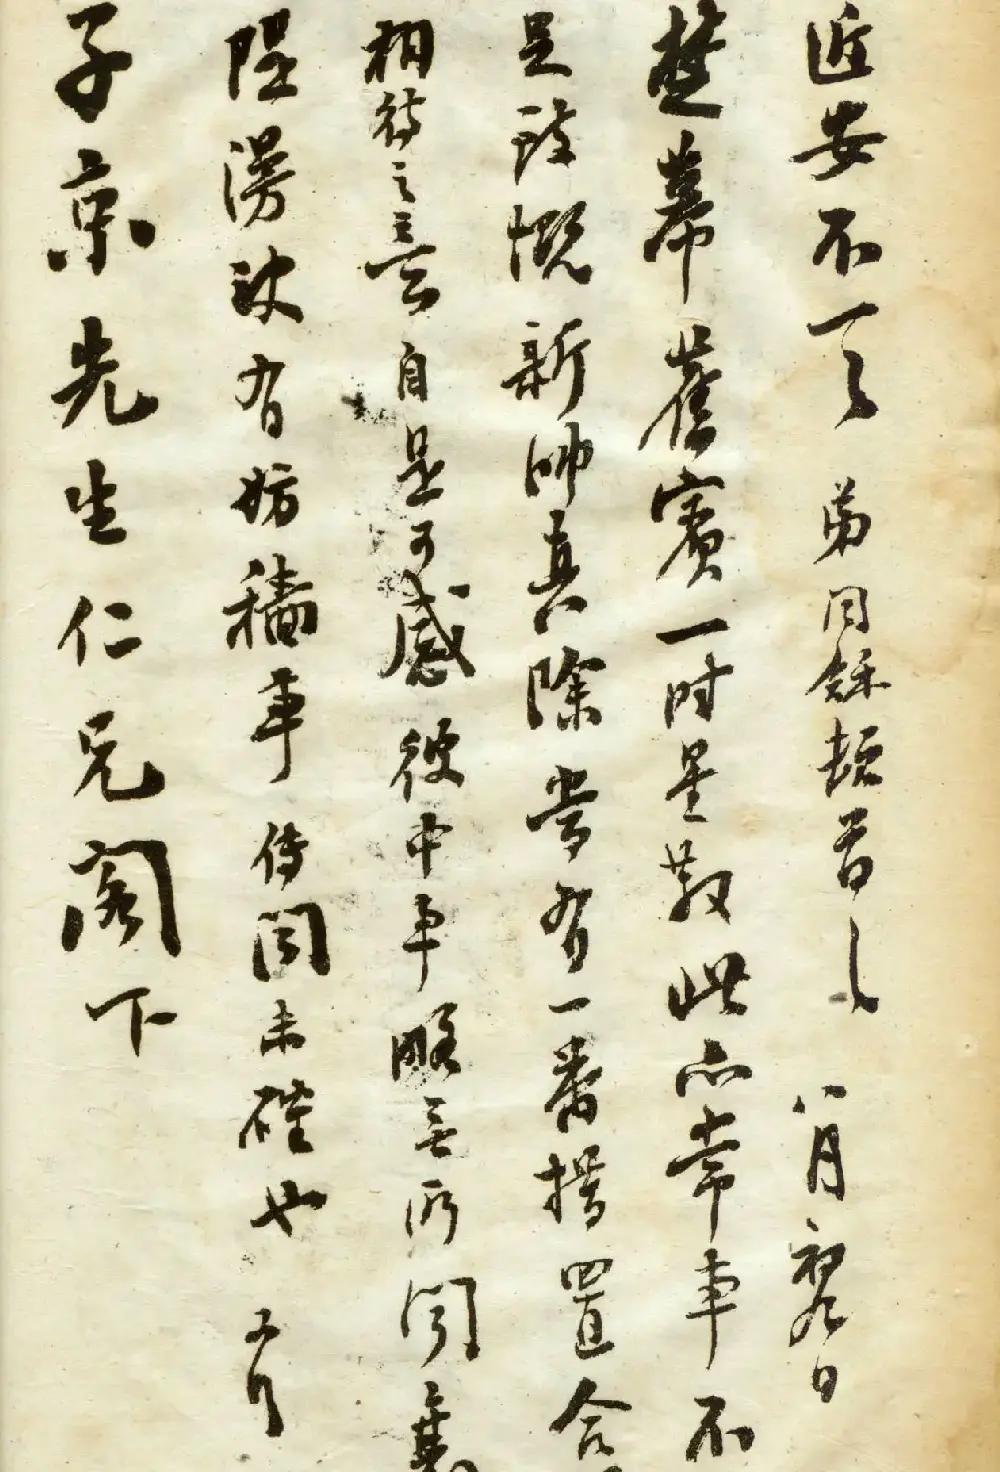 近安不一一 弟同龢頓首 八月初九日
楚幕舊賓一時星散此亦常事不
足致慨新帥真除當有一番措置合
相待之言自是可感彼中事略無所聞襄
隄漫決有妨穡事傳聞未確也
子京先生仁兄閣下